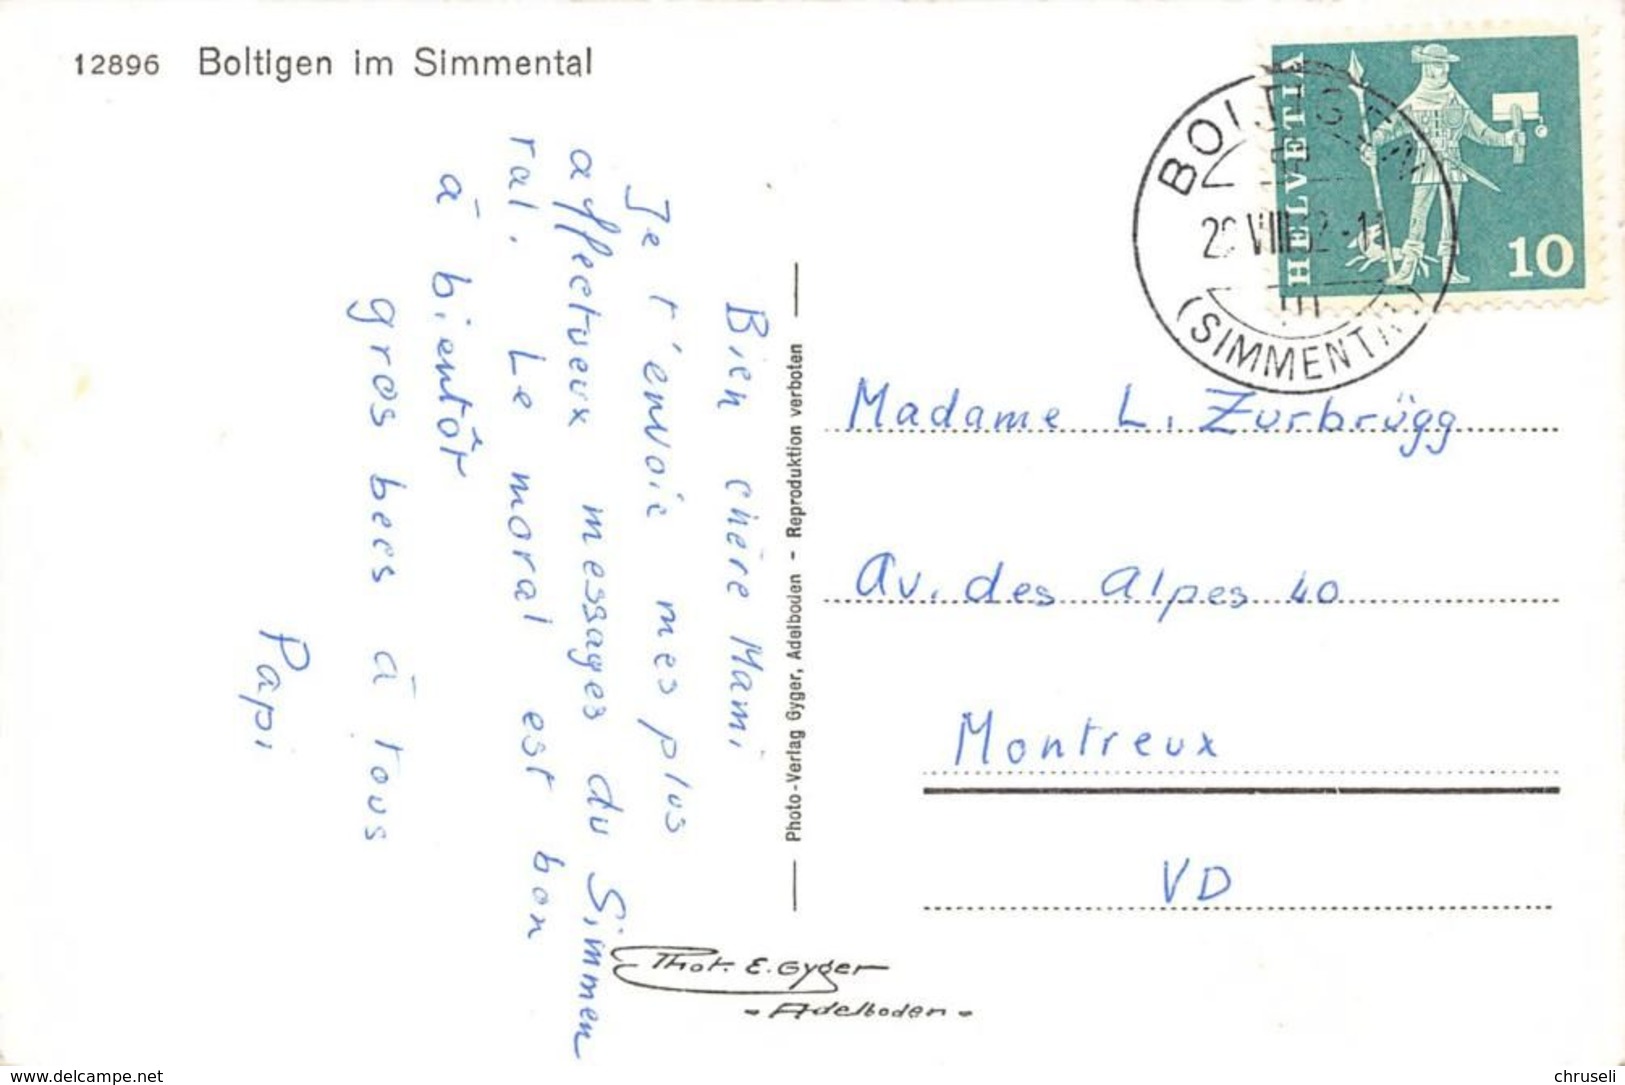 12896 Boltigen im Simmental
Bien chère Mami
Je t'envoie mes plus
affectueux messages du Simmen
ral. Le moral est bon
à bientôt
gros becs à tous
Papi
Photo-Verlag Gyger, Adelboden - Reproduktion verboten
Phot. E. Gyger
- Adelboden -
HELVETIA
10
BOLTIGEN
(SIMMENTAL)
Madame L. Zurbrügg
Av. des Alpes 40
Montreux
VD
www.delcampe.net
chruseli